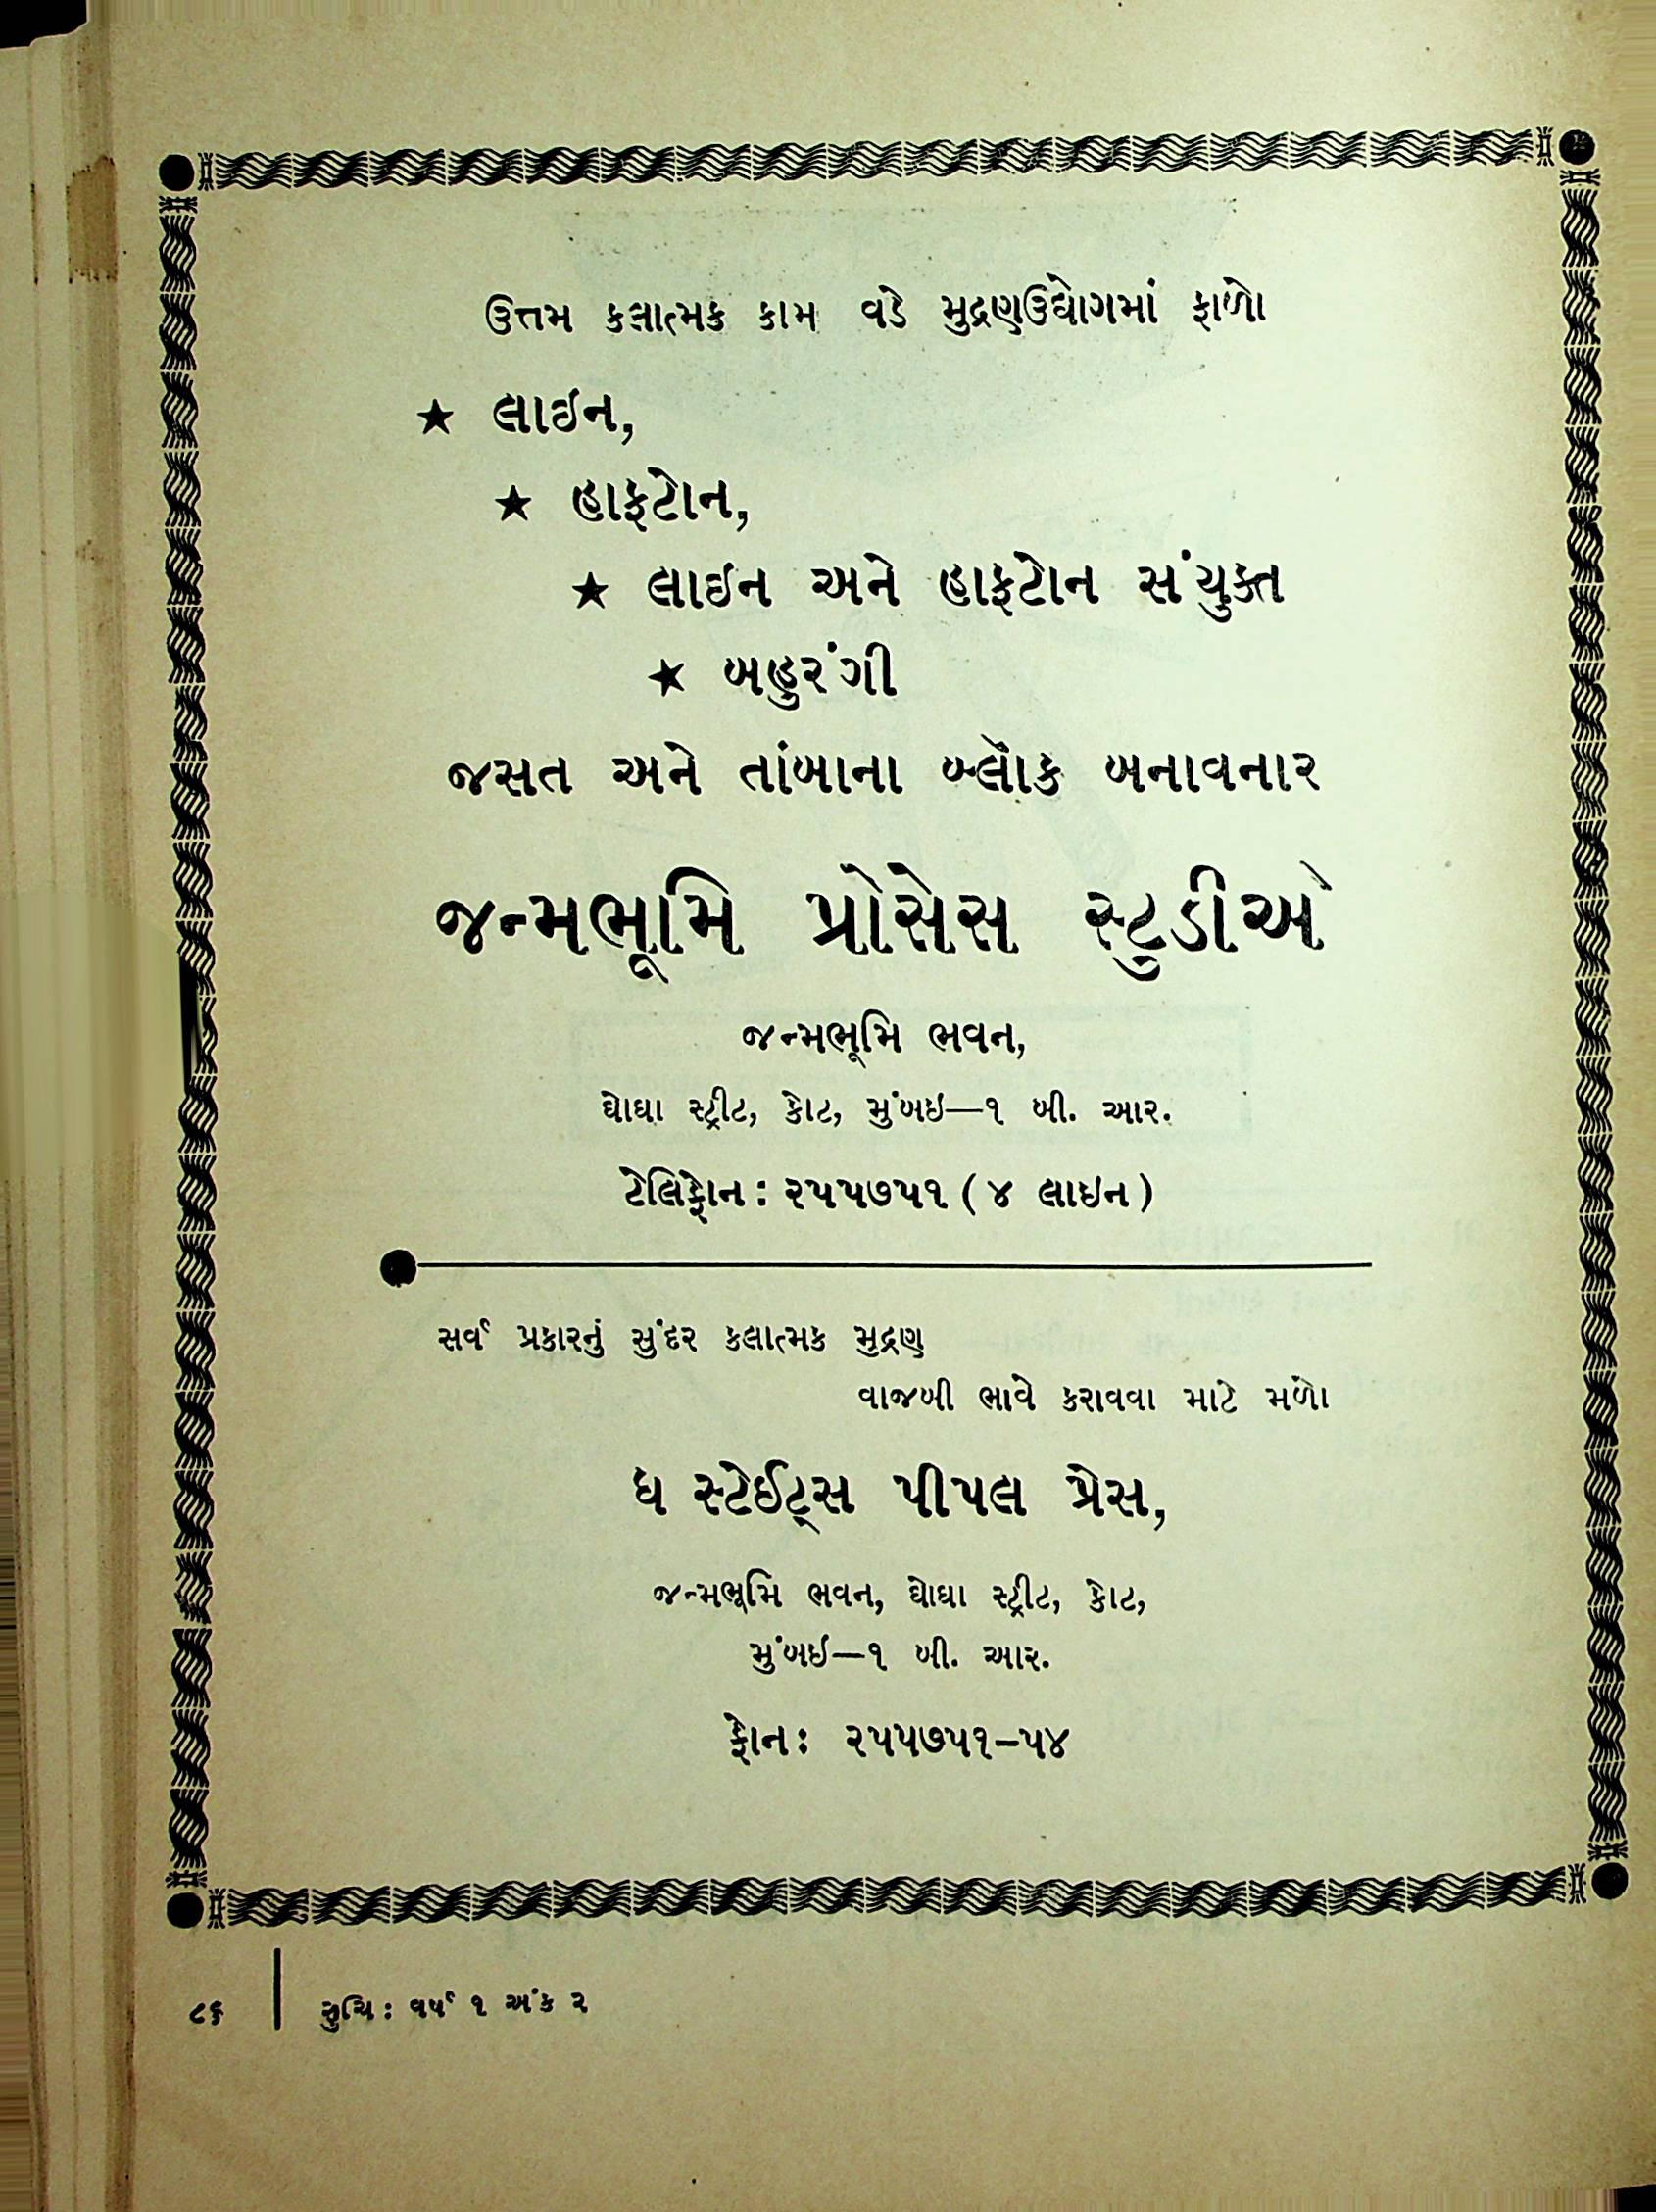 ઉત્તમ કલાત્મક કામ વડે મુદ્રણઉદ્યોગમાં ફાળો
★ લાઇન,
★ હાફટોન,
★ લાઇન અને હાફટોન સંયુક્ત
★ બહુરંગી
જસત અને તાંબાના બ્લૉક બનાવનાર
જન્મભૂમિ પ્રોસેસ સ્ટુડીઓ
જન્મભૂમિ ભવન,
ઘોઘા સ્ટ્રીટ, કોટ, મુંબઇ—૧ બી. આર.
ટેલિફોન : ૨૫૫૭૫૧ ( ૪ લાઇન )
સર્વ પ્રકારનું સુંદર કલાત્મક મુદ્રણ
વાજબી ભાવે કરાવવા માટે મળો
ધ સ્ટેઈટ્સ પીપલ પ્રેસ,
જન્મભૂમિ ભવન, ઘોઘા સ્ટ્રીટ, કોટ,
મુંબઇ—૧ બી. આર.
ફોન : ૨૫૫૭૫૧–૫૪
૮૬ | રુચિ : વર્ષ ૧ અંક ૨